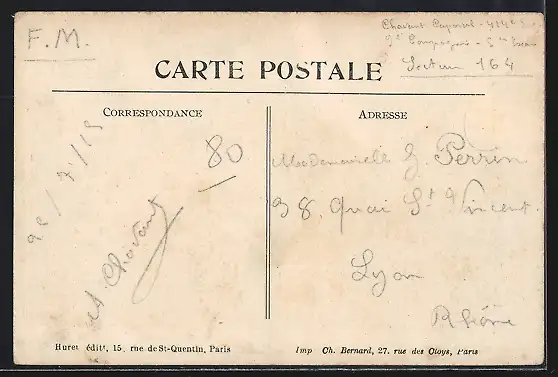 F. M.
Chavant Caporal - 414e
9e Compagnie - 5
Secteur 164
CARTE POSTALE
CORRESPONDANCE
ADRESSE
80
/7/15
Chavant
Mademoiselle G. Perrin
98, Quai St Vincent
Lyon
Rhône
Huret éditt, 15, rue de St-Quentin, Paris
Imp Ch. Bernard, 27, rue des Cloys, Paris